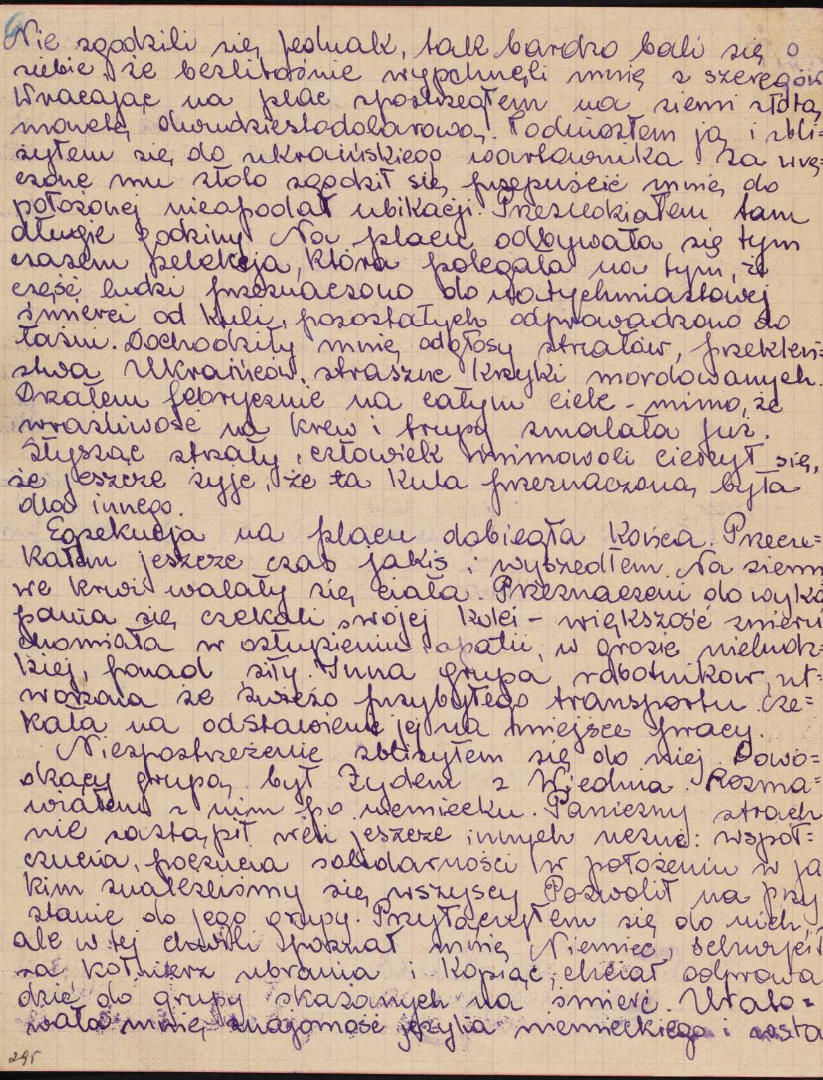 6
Nie zgodzili się jednak, tak bardzo bali się o
siebie, że bezlitośnie wypchnęli mnię z szeregów
Wracając na plac spostrzegłem na ziemi złotą
monetę dwudziestodolarową. Podniosłem ją i zbli=
żyłem się do ukraińskiego wartownika za wrę=
czone mu złoto zgodził się przepuścić mnię do
położonej nieopodał ubikacji. Przesiedziałem tam
długie godziny. Na placu odbywała się tym
czasem selekcja, która polegała na tym, że
część ludzi przeznaczono do natychmiastowej
śmierci od kuli, pozostałych odprowadzono do
łaźni. Dochodziły mnię odgłosy strzałów, przekleń=
stwa Ukraińców, straszne krzyki mordowanych.
Drżałem febrycznie na całym ciele - mimo, że
wrażliwość na krew i trupy zmalała już.
Słysząc strzały, człowiek mimowoli cieszył się,
że jeszcze żyje, że ta kula przeznaczoną była
dla innego.
Egzekucja na placu dobiegła końca. Przecze=
kałem jeszcze czas jakiś i wyszedłem. Na ziemi
we krwi walały się ciała. Przeznaczeni do wyką
pania się czekali swojej kolei - większość znieru
chomiała w osłupieniu i apatii, w grozie nieludz=
kiej, ponad siły. Inna grupa robotników, ut=
worzona ze świeżo przybyłego transportu cze=
kała na odstawienie jej na miejsce pracy.
Niespostrzeżenie zbliżyłem się do niej. Dowo=
dzący grupą był Żydem z Wiednia. Rozma=
wiałem z nim po niemiecku. Paniczny strach
nie zastąpił weń jeszcze innych uczuć: współ=
czucia, poczucia solidarności w położeniu w ja
kim znaleźliśmy się wszyscy. Pozwolił na przy
stanie do jego grupy. Przyłączyłem się do nich,
ale w tej chwili poznał mnię Niemiec, schwycił
za kołnierz ubrania i kopiąc, chciał odprowa
dzić do grupy skazanych na śmierć. Urato=
wała mnię znajomość języka niemieckiego i
295